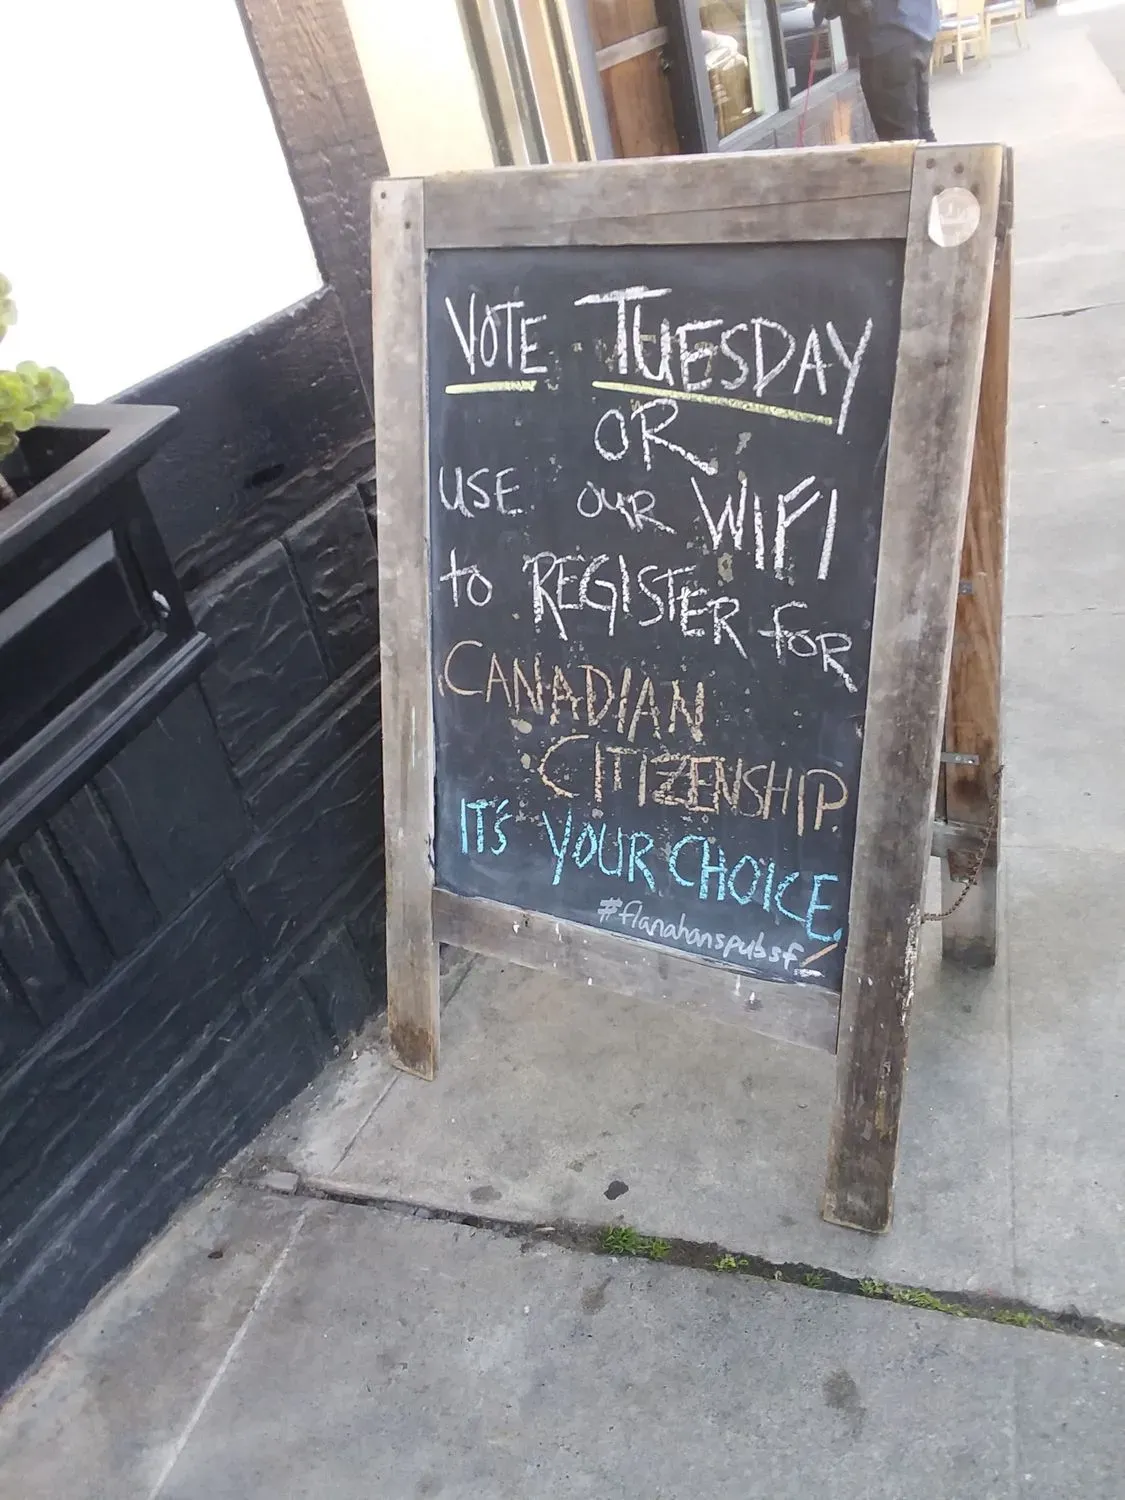 VOTE TUESDAY
OR
USE OUR WIFI
to REGISTER FOR
CANADIAN
CITIZENSHIP
IT'S YOUR CHOICE.
#flanahanspubsf